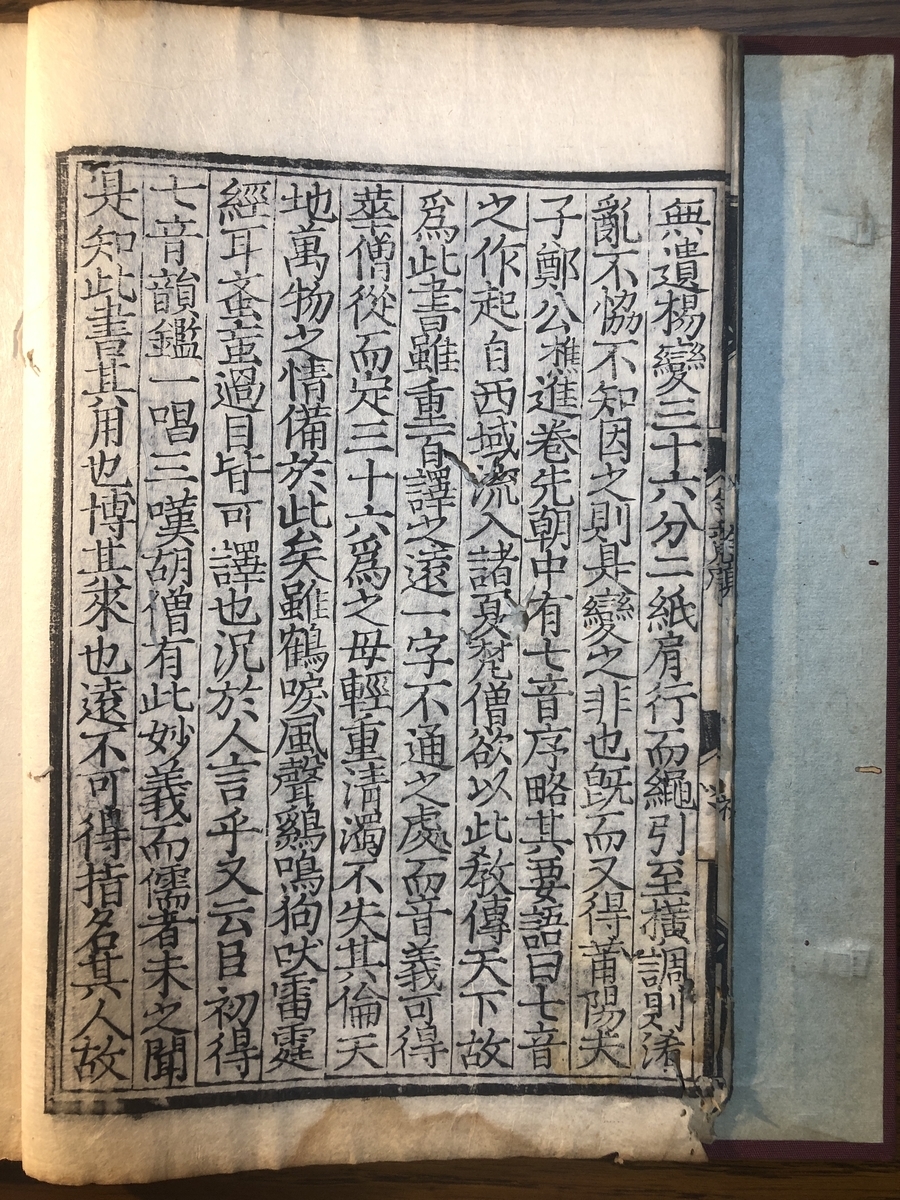 無遺楊變三十六分二紙肩行而繩引至橫調則淆
亂不恊不知因之則是變之非也旣而又得莆陽夫
子鄭公樵進卷先朝中有七音序略其要語曰七音
之作起自西域流入諸夏梵僧欲以此敎傳天下故
爲此書雖重百譯之遠一字不通之處而音義可得
華僧從而定三十六爲之母輕重清濁不失其倫天
地萬物之情備於此矣雖鶴唳風聲鷄鳴狗吠雷霆
經耳蚉䖟過目皆可譯也況於人言乎又云臣初得
七音韻鑑一唱三嘆胡僧有此妙義而儒者未之聞
是知此書其用也博其來也遠不可得指名其人故